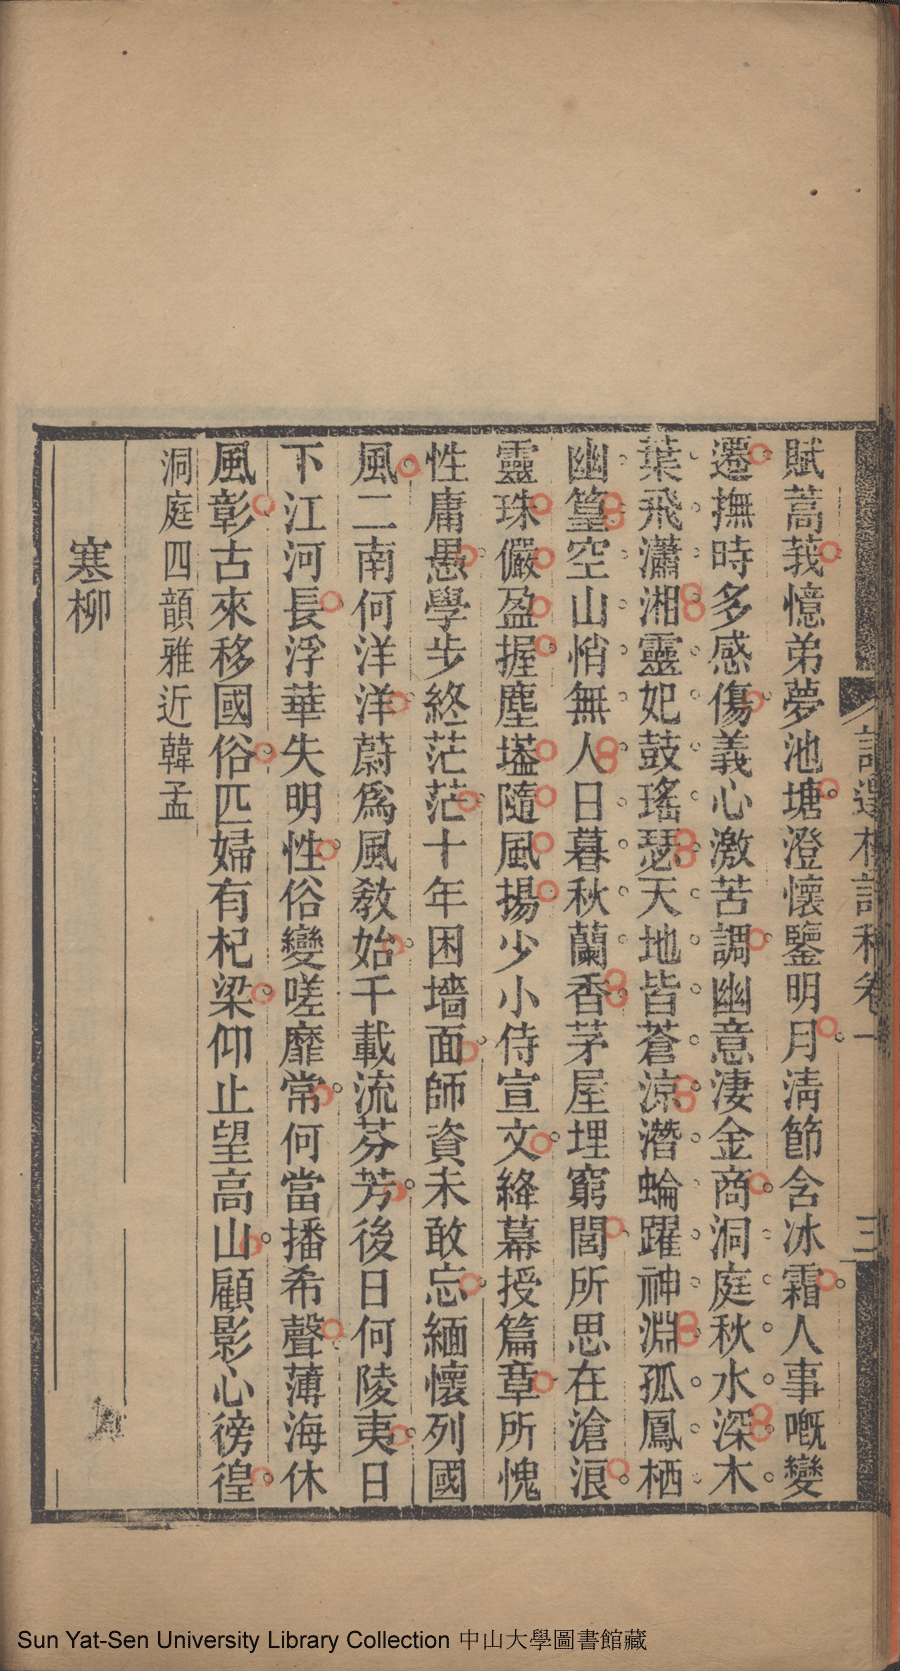 賦蒿莪憶弟夢池塘澄懷鑒明月淸節含冰霜人事嘅變
遷撫時多感傷義心激苦調幽意淒金商洞庭秋水深木
葉飛瀟湘靈妃鼓瑤瑟天地皆蒼涼潛蜦躍神淵孤鳳栖
幽篁空山悄無人日暮秋蘭香茅屋埋窮閭所思在滄浪
靈珠儼盈握塵壒隨風揚少小侍宣文絳幕授篇章所愧
性庸愚學步終茫茫十年困墻面師資未敢忘緬懷列國
風二南何洋洋蔚爲風敎始千載流芬芳後日何陵夷日
下江河長浮華失明性俗變嗟靡常何當播希聲薄海休
風彰古來移國俗匹婦有杞梁仰止望高山顧影心徬徨
洞庭四韻雅近韓孟
寒柳
三
Sun Yat-Sen University Library Collection 中山大學圖書館藏